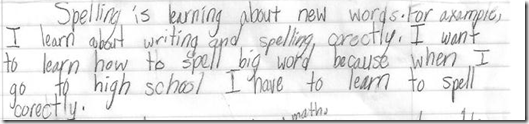 Spelling is learning about new words. For axample,
I learn about writing and spelling corectly. I want
to learn how to spell big word because when I
go to high school I have to learn to spell
corectly.
maths